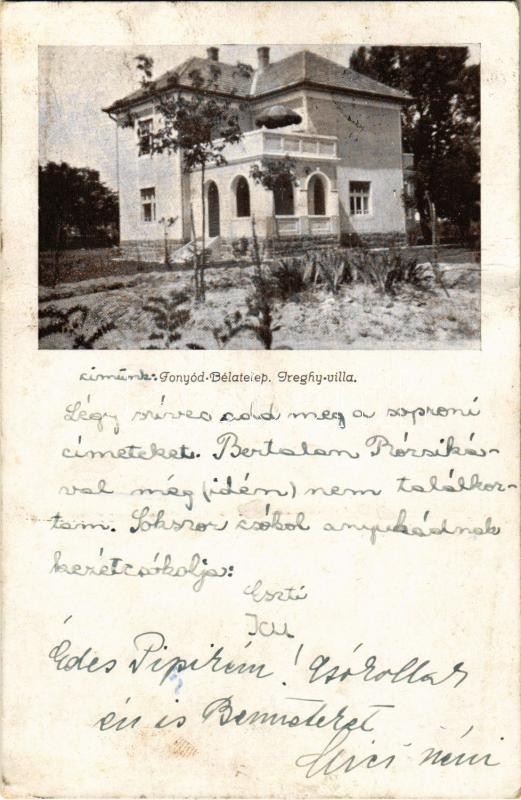 címünk: Fonyód-Bélatelep. Treghy-villa.
Légy szíves add meg a soproni
címeteket. Bertalan Rózsiká-
val még (idén) nem találkoz-
tam. Sokszor csókol anyukádnak
kezétcsókolja:
Eszti
Icu
Édes Pipirém! Csókollak
én is Benneteket
Mici néni